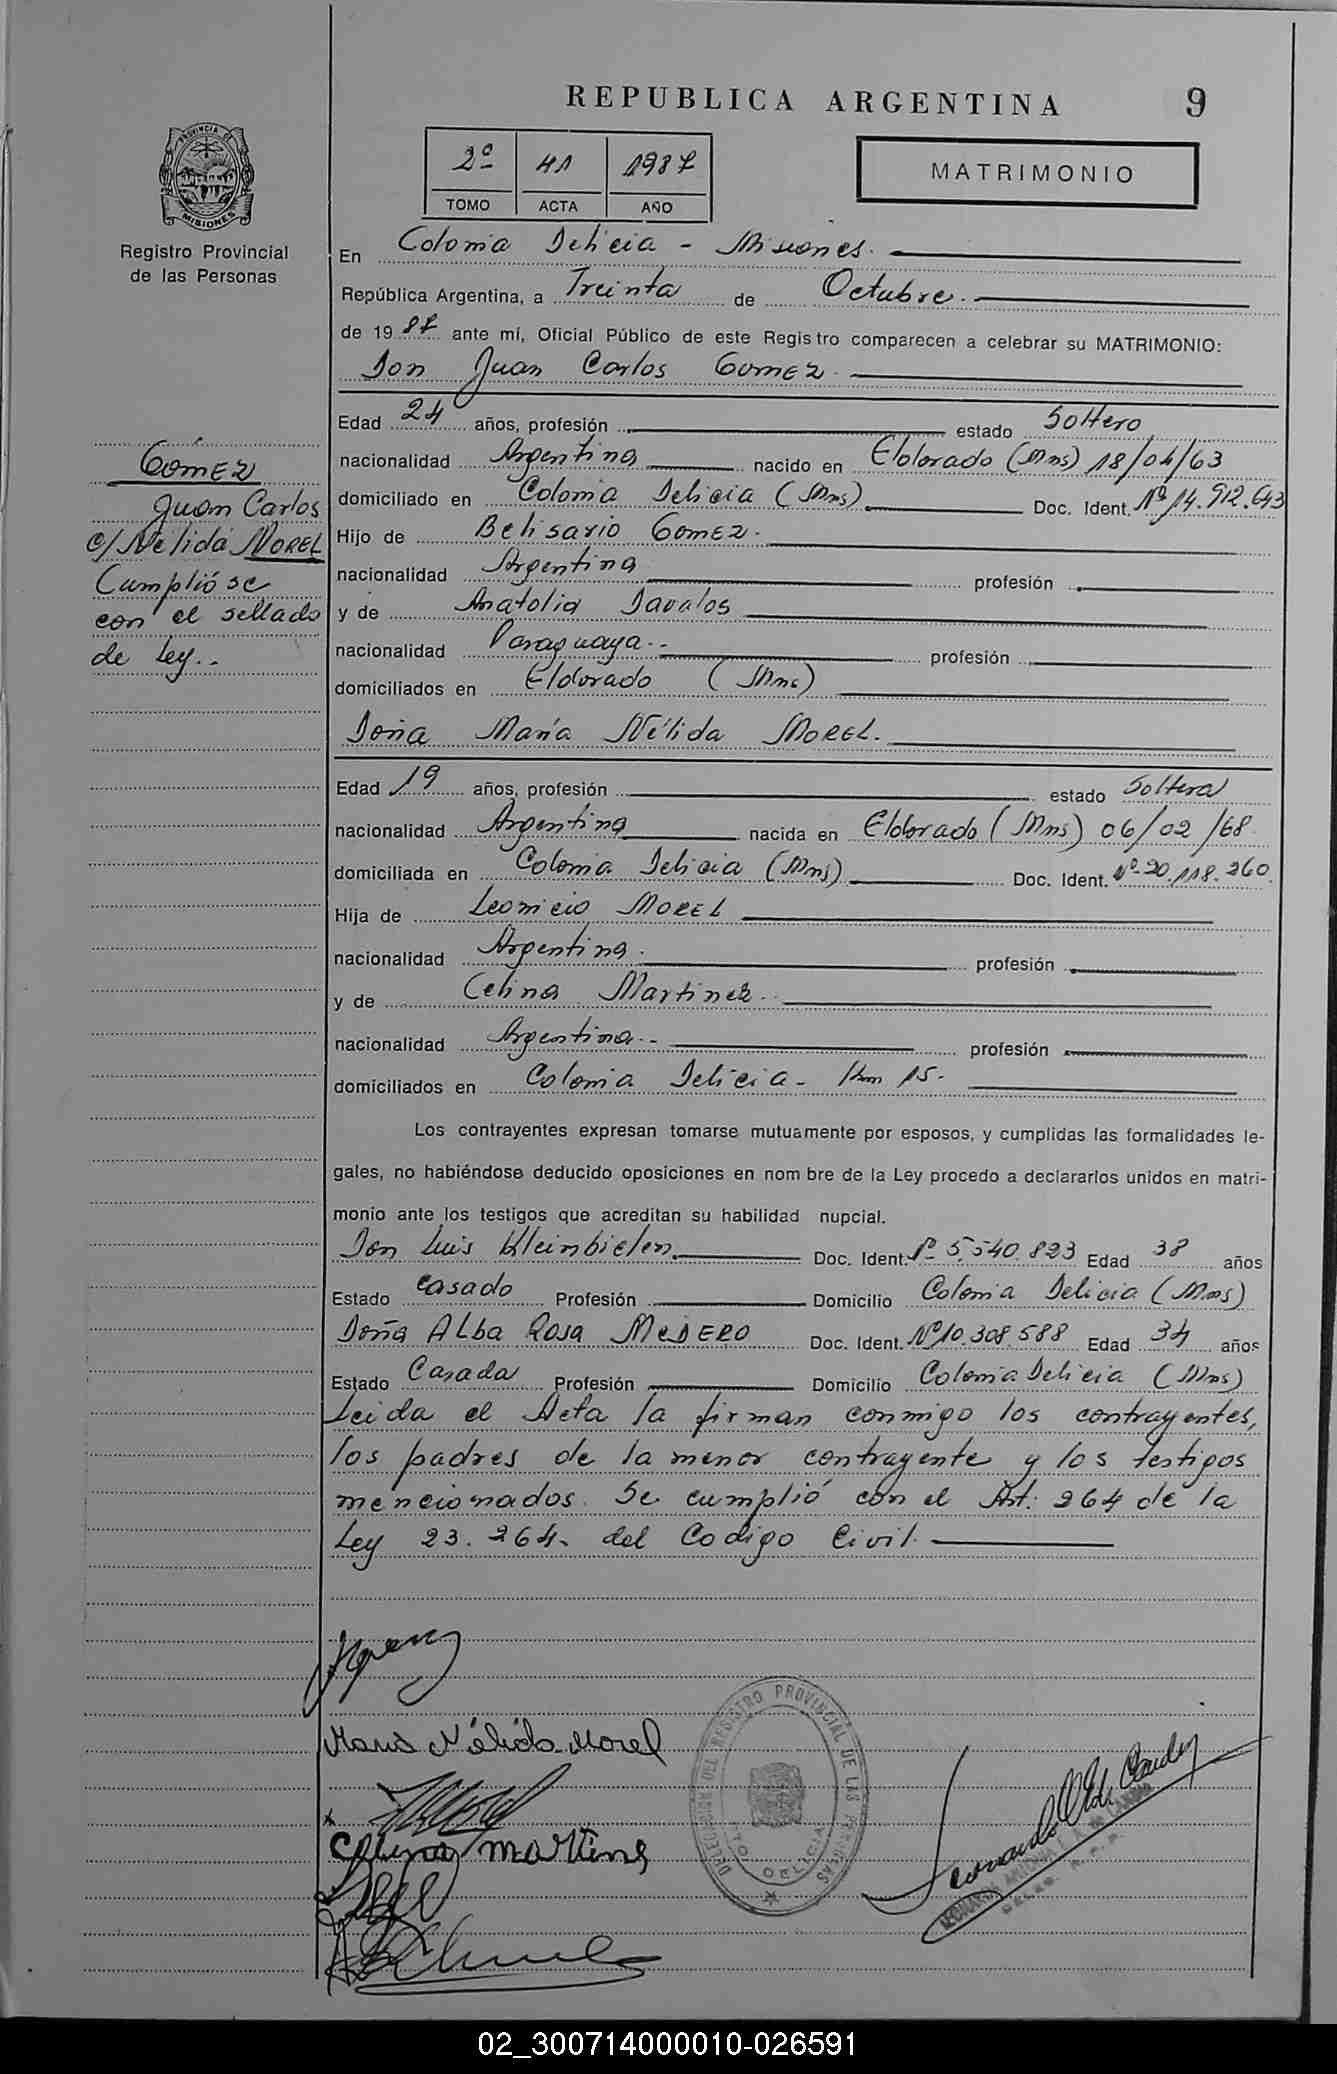 REPUBLICA ARGENTINA 9
PROVINCIA DE MISIONES
Registro Provincial
de las Personas
2º 41 1987
TOMO ACTA AÑO
MATRIMONIO
En Colonia Delicia - Misiones.
República Argentina, a Treinta de Octubre.
de 1987 ante mí, Oficial Público de este Registro comparecen a celebrar su MATRIMONIO:
Don Juan Carlos GOMEZ.
Edad 24 años, profesión estado Soltero
nacionalidad Argentina nacido en Eldorado (Mns) 18/04/63
domiciliado en Colonia Delicia (Mns) Doc. Ident. Nº 14.912.643
Hijo de Belisario GOMEZ.
nacionalidad Argentina profesión
y de Anatolia Davalos
nacionalidad Paraguaya.- profesión
domiciliados en Eldorado (Mns)
Doña María Nélida MOREL.
GOMEZ
Juan Carlos
c/ Nélida MOREL
Cumplióse
con el sellado
de Ley..
Edad 19 años, profesión estado Soltera
nacionalidad Argentina nacida en Eldorado (Mns) 06/02/68
domiciliada en Colonia Delicia (Mns) Doc. Ident. Nº 20.118.260.
Hija de Leonicio MOREL
nacionalidad Argentina. profesión
y de Celina Martinez.
nacionalidad Argentina.- profesión
domiciliados en Colonia Delicia - Km 15.
Los contrayentes expresan tomarse mutuamente por esposos, y cumplidas las formalidades le-
gales, no habiéndose deducido oposiciones en nom bre de la Ley procedo a declararlos unidos en matri-
monio ante los testigos que acreditan su habilidad nupcial.
Don Luis Kleinbielen. Doc. Ident. Nº 5.540.823 Edad 38 años
Estado Casado Profesión Domicilio Colonia Delicia (Mns)
Doña ALBA ROSA MEDERO Doc. Ident. Nº 10.308.588 Edad 34 años
Estado Casada Profesión Domicilio Colonia Delicia (Mns)
Leida el Acta la firman conmigo los contrayentes,
los padres de la menor contrayente y los testigos
mencionados. Se cumplió con el Art: 264 de la
Ley 23.264. del Codigo Civil.
Maria Nélida Morel
Celina Martines
DELEGACION DEL REGISTRO PROVINCIAL DE LAS PERSONAS
PTO. DELICIA
02_300714000010-026591